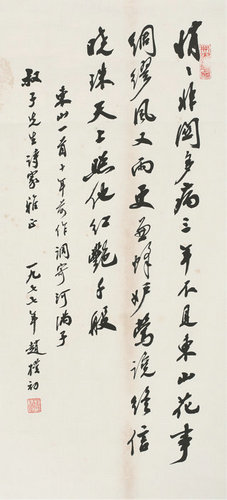 悄悄非关多病三年不见东山花事
绸缪风又雨更兼蜂妒莺谗终信
晓珠天上照他红艳千般
东山一首十年前作调寄河满子
叔子先生诗家雅正
一九七七年赵朴初